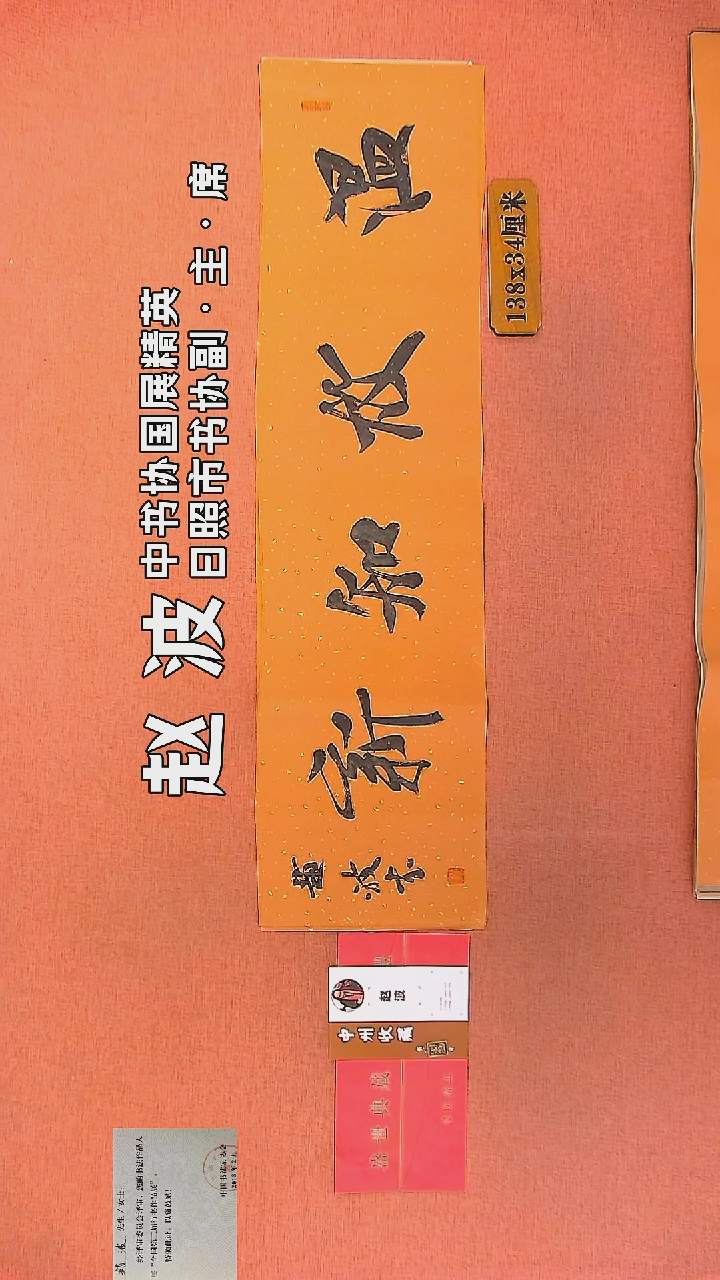 赵波
中书协国展精英
日照市书协副·主·席
温故知新
波书
138x34厘米
赵波
中州收藏
盛世典藏
先生/女士: